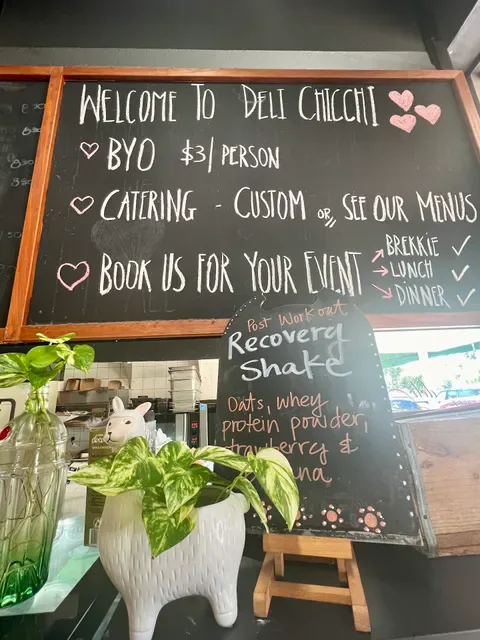 WELCOME TO DELI CHICCHI
BYO $3/PERSON
CATERING - CUSTOM OR SEE OUR MENUS
BOOK US FOR YOUR EVENT
BREKKIE
LUNCH
DINNER
Post Workout
Recovery
Shake
Oats, whey
protein powder,
&